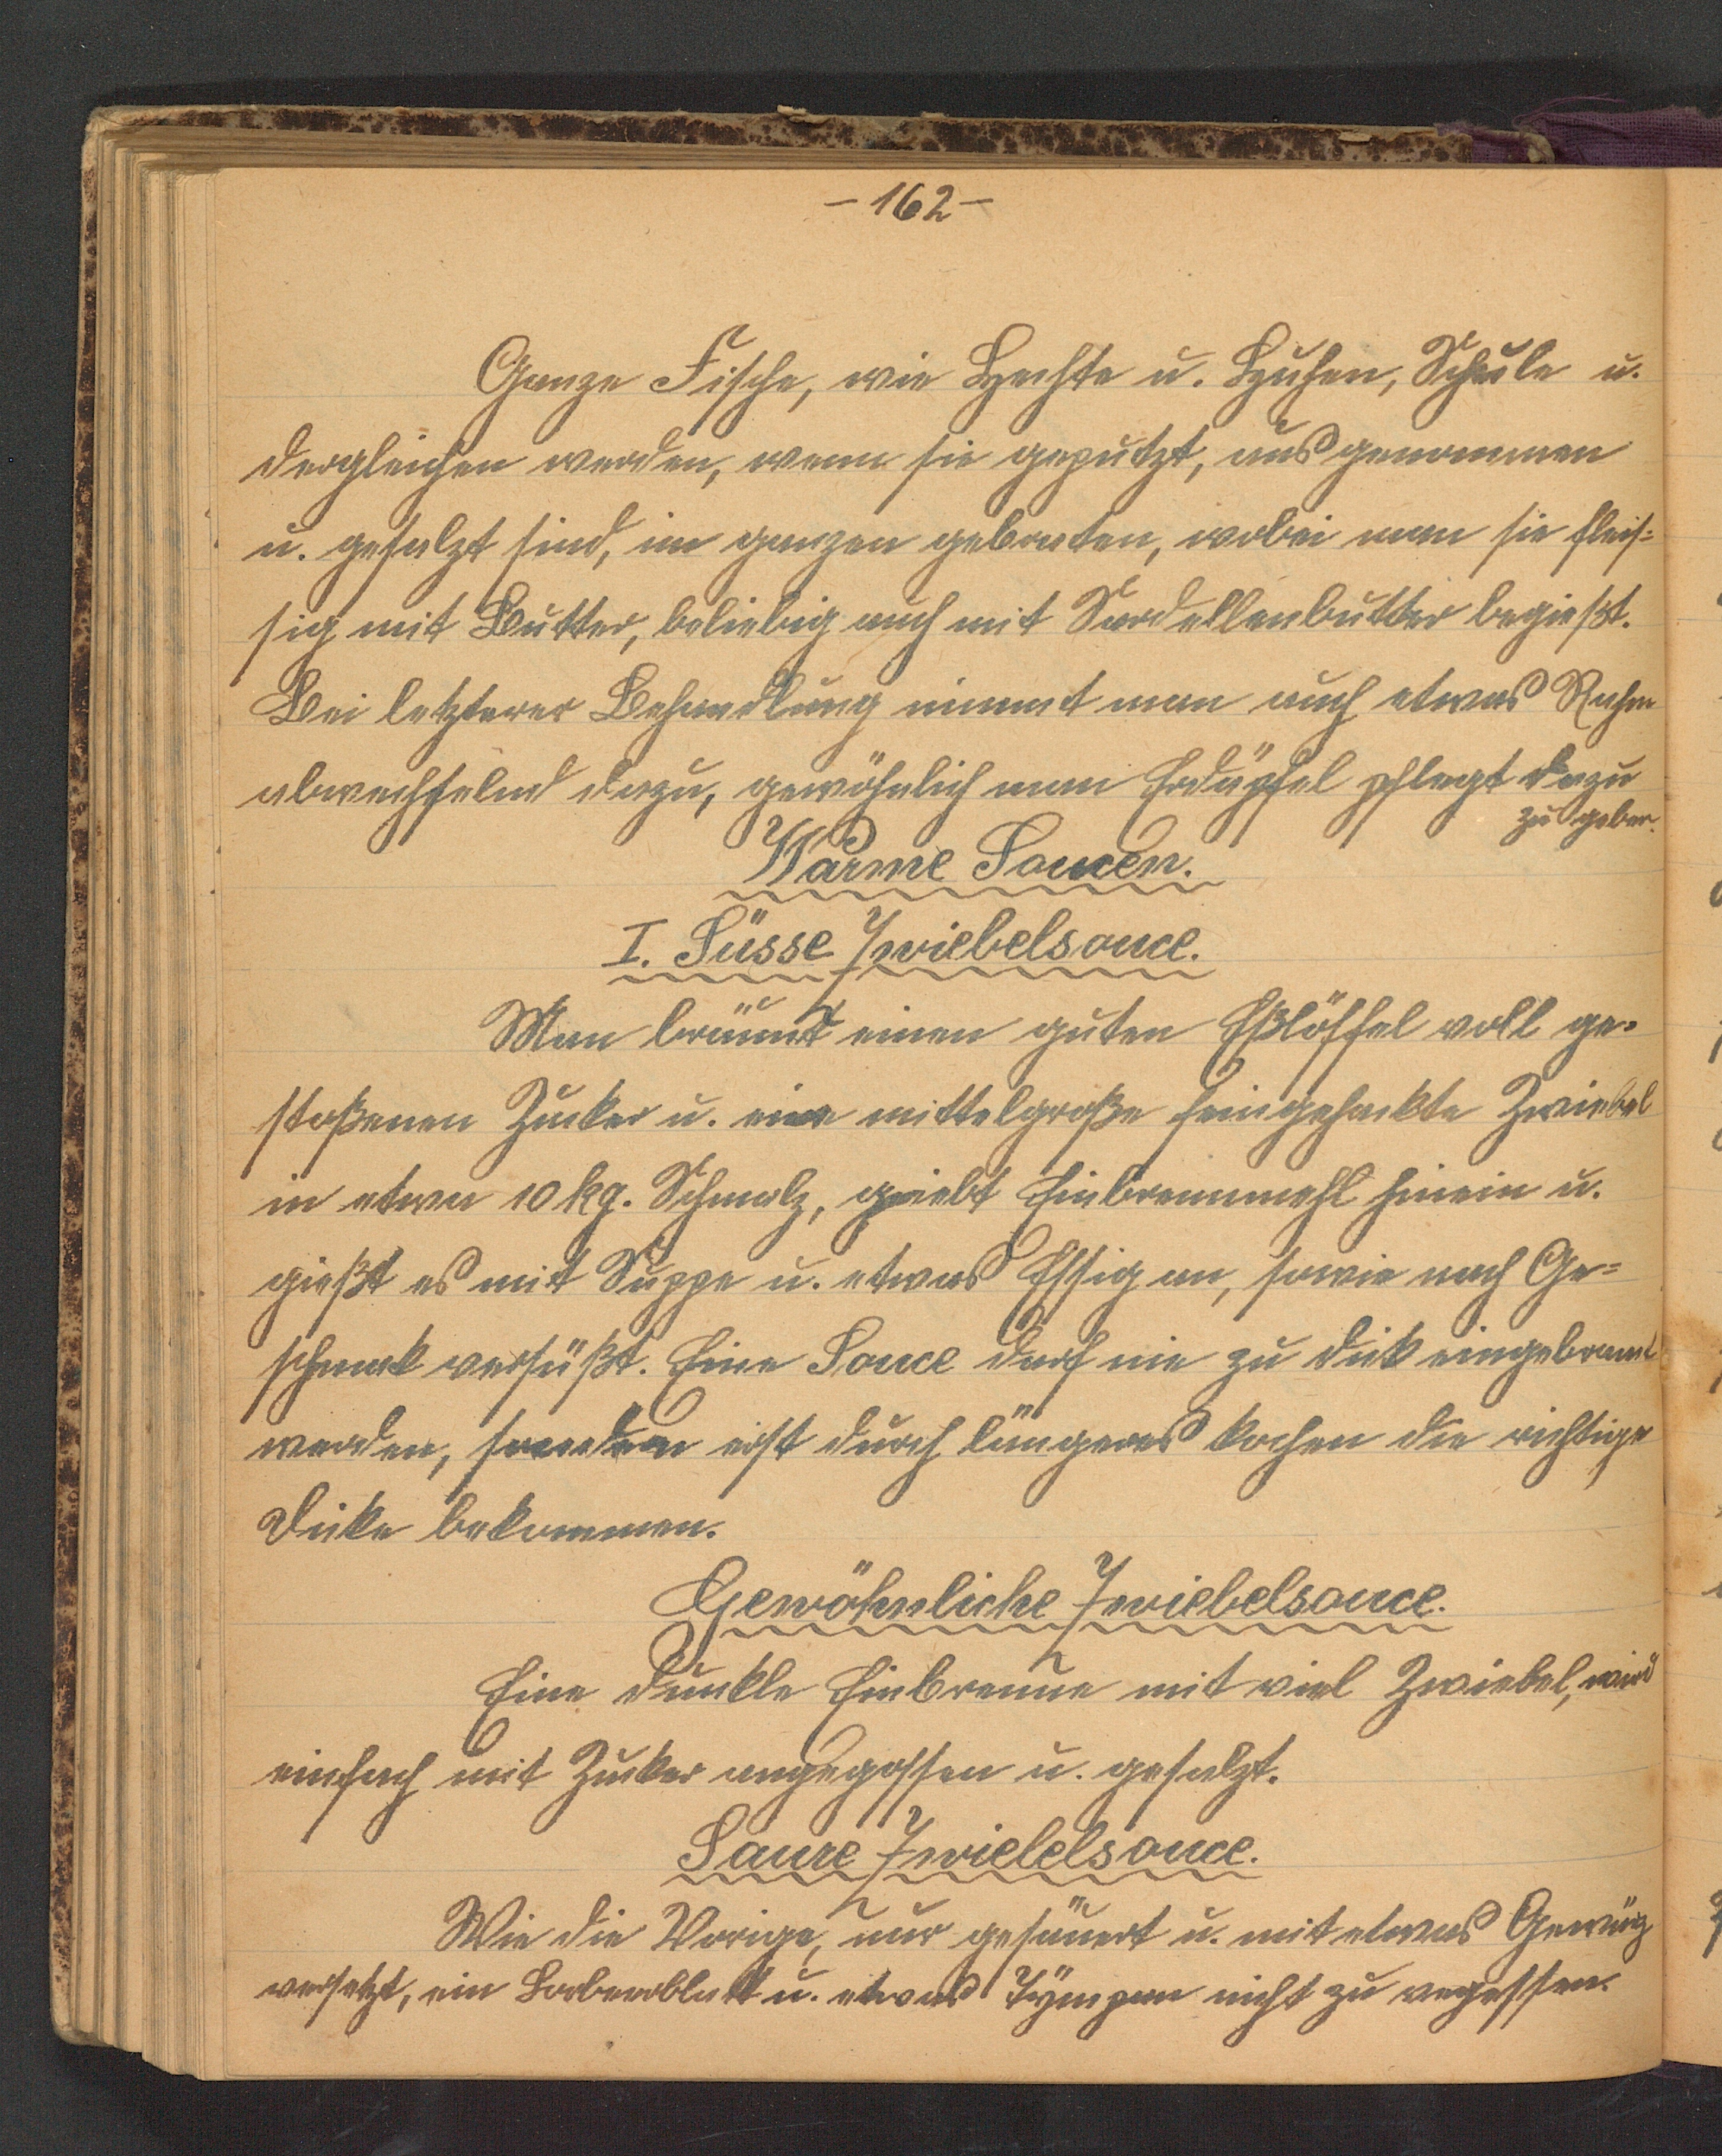 - 162 -
Ganze Fische, wie Hechte u. Huhen, Schiele u.
dergleichen werden, wenn sie geputzt, ausgenommen
u. gesalzt sind, im ganzen gebraten, wobei man sie fleis=
sig mit Butter, beliebig auch mit Sardellenbutter begießt.
Bei letzterer Behandlung nimmt man auch etwas Rahm
abwechselnd dazu, gewöhnlich man Erdäpfel pflegt dazu
zu geben.
Warme Soucen.
I. Süsse Zwiebelsouce.
Man bräunt einen guten Eßlöffel voll ge=
stoßenen Zucker u. eine mittelgroße feingehackte Zwiebel
in etwa 10 kg. Schmalz, giebt Einbrennmehl hinein u.
gießt es mit Suppe u. etwas Essig an, sowie nach Ge=
schmack versüßt. Eine Souce darf nie zu dick eingebrannt
werden, sondern erst durch längeres kochen die richtige
Dicke bekommen.
Gewöhnliche Zwiebelsouce.
Eine dunkle Einbrenne mit viel Zwiebel, wird
einfach mit Zucker angegossen u. gesalzt.
Saure Zwiebelsouce.
Wie die Vorige, nur gesäuert u. mit etwas Gewürz
versetzt, ein Lorberblatt u. etwas nicht zu vergessen.